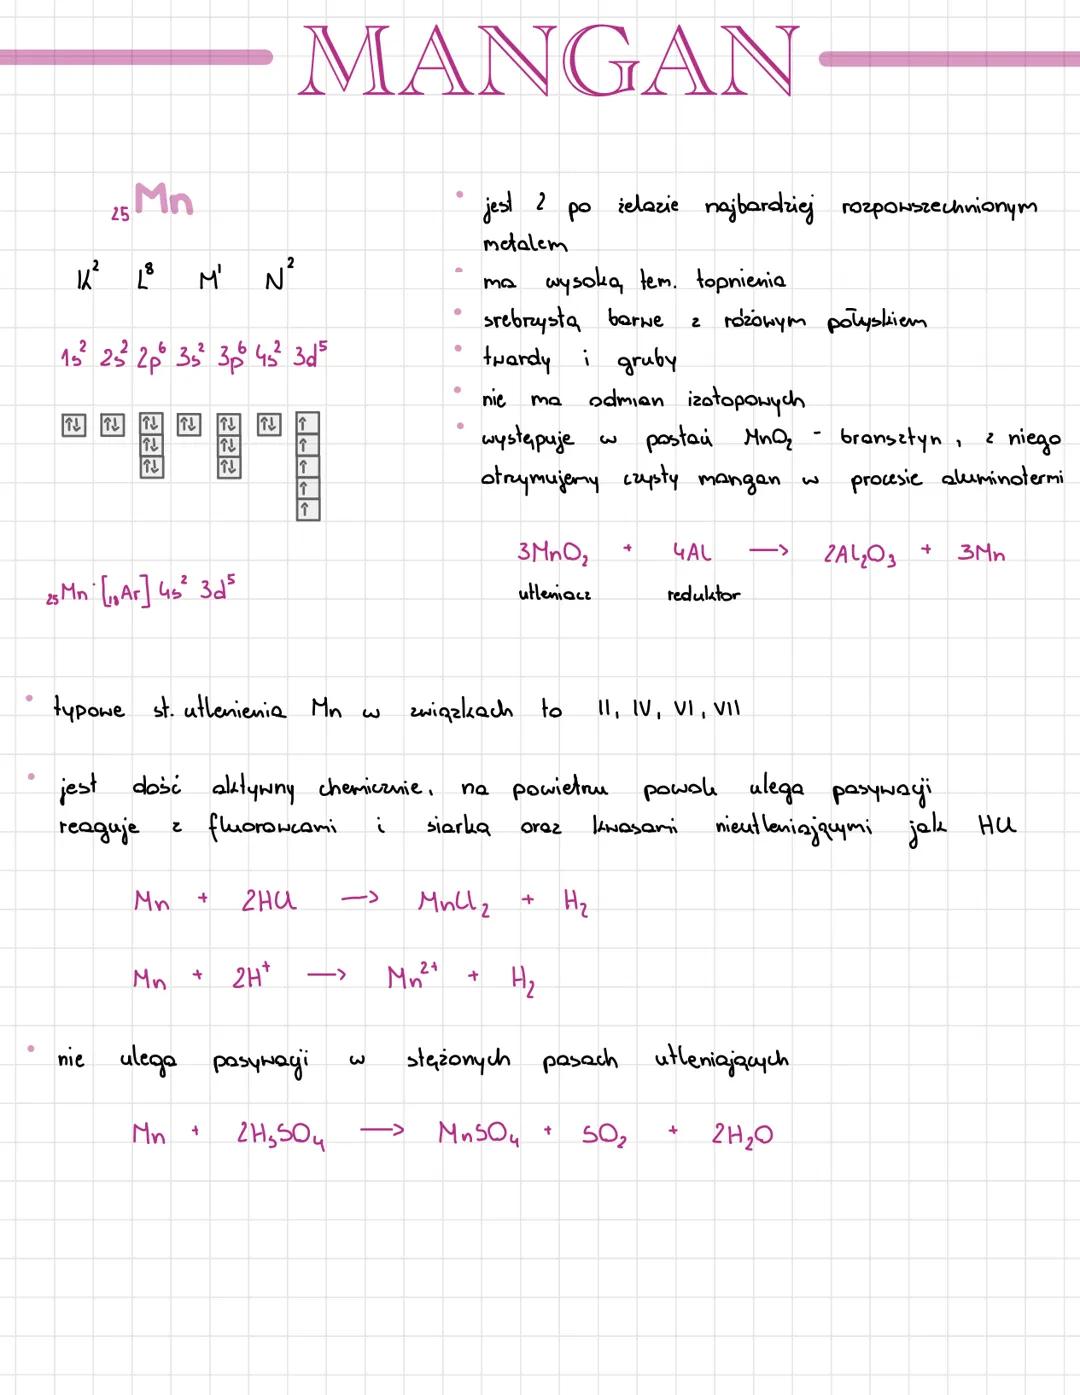 MANGAN
₂₅Mn
K² L⁸ M¹ N²
1s² 2s² 2p⁶ 3s² 3p⁶ 4s² 3d⁵
↑↓ ↑↓ ↑↓ ↑↓ ↑↓ ↑↓ ↑
↑↓ ↑↓ ↑
↑↓ ↑↓ ↑
↑
↑
₂₅Mn [₁₈Ar] 4s² 3d⁵
• jest 2 po żelazie najbardziej rozpowszechnionym
metalem
• ma wysoką tem. topnienia
• srebrzystą barwe z różowym połyskiem
• twardy i gruby
• nie ma odmian izotopowych
• występuje w postaci MnO₂ - bransztyn, z niego
otrzymujemy czysty mangan w procesie aluminotermi
3MnO₂ + 4Al —> 2Al₂O₃ + 3Mn
utleniacz reduktor
• typowe st. utlenienia Mn w związkach to II, IV, VI, VII
• jest dość aktywny chemicznie, na powietrzu powoli ulega pasywacji
reaguje z fluorowcami i siarką oraz kwasami nieutleniającymi jak HCl
Mn + 2HCl —> MnCl₂ + H₂
Mn + 2H⁺ —> Mn²⁺ + H₂
• nie ulega pasywacji w stężonych pasach utleniających
Mn + 2H₅SO₄ —> MnSO₄ + SO₂ + 2H₂O